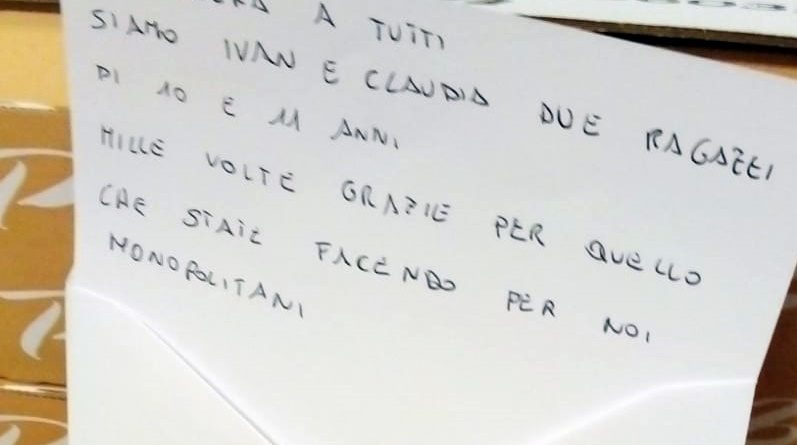 A TUTTI
SIAMO IVAN E CLAUDIA DUE RAGAZZI
DI 10 E 11 ANNI
MILLE VOLTE GRAZIE PER QUELLO
CHE STATE FACENDO PER NOI
MONOPOLITANI